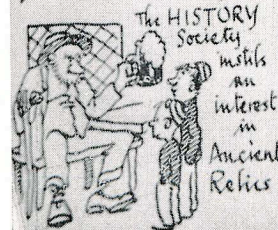 The HISTORY
Society
instils
an
interest
in
Ancient
Relics